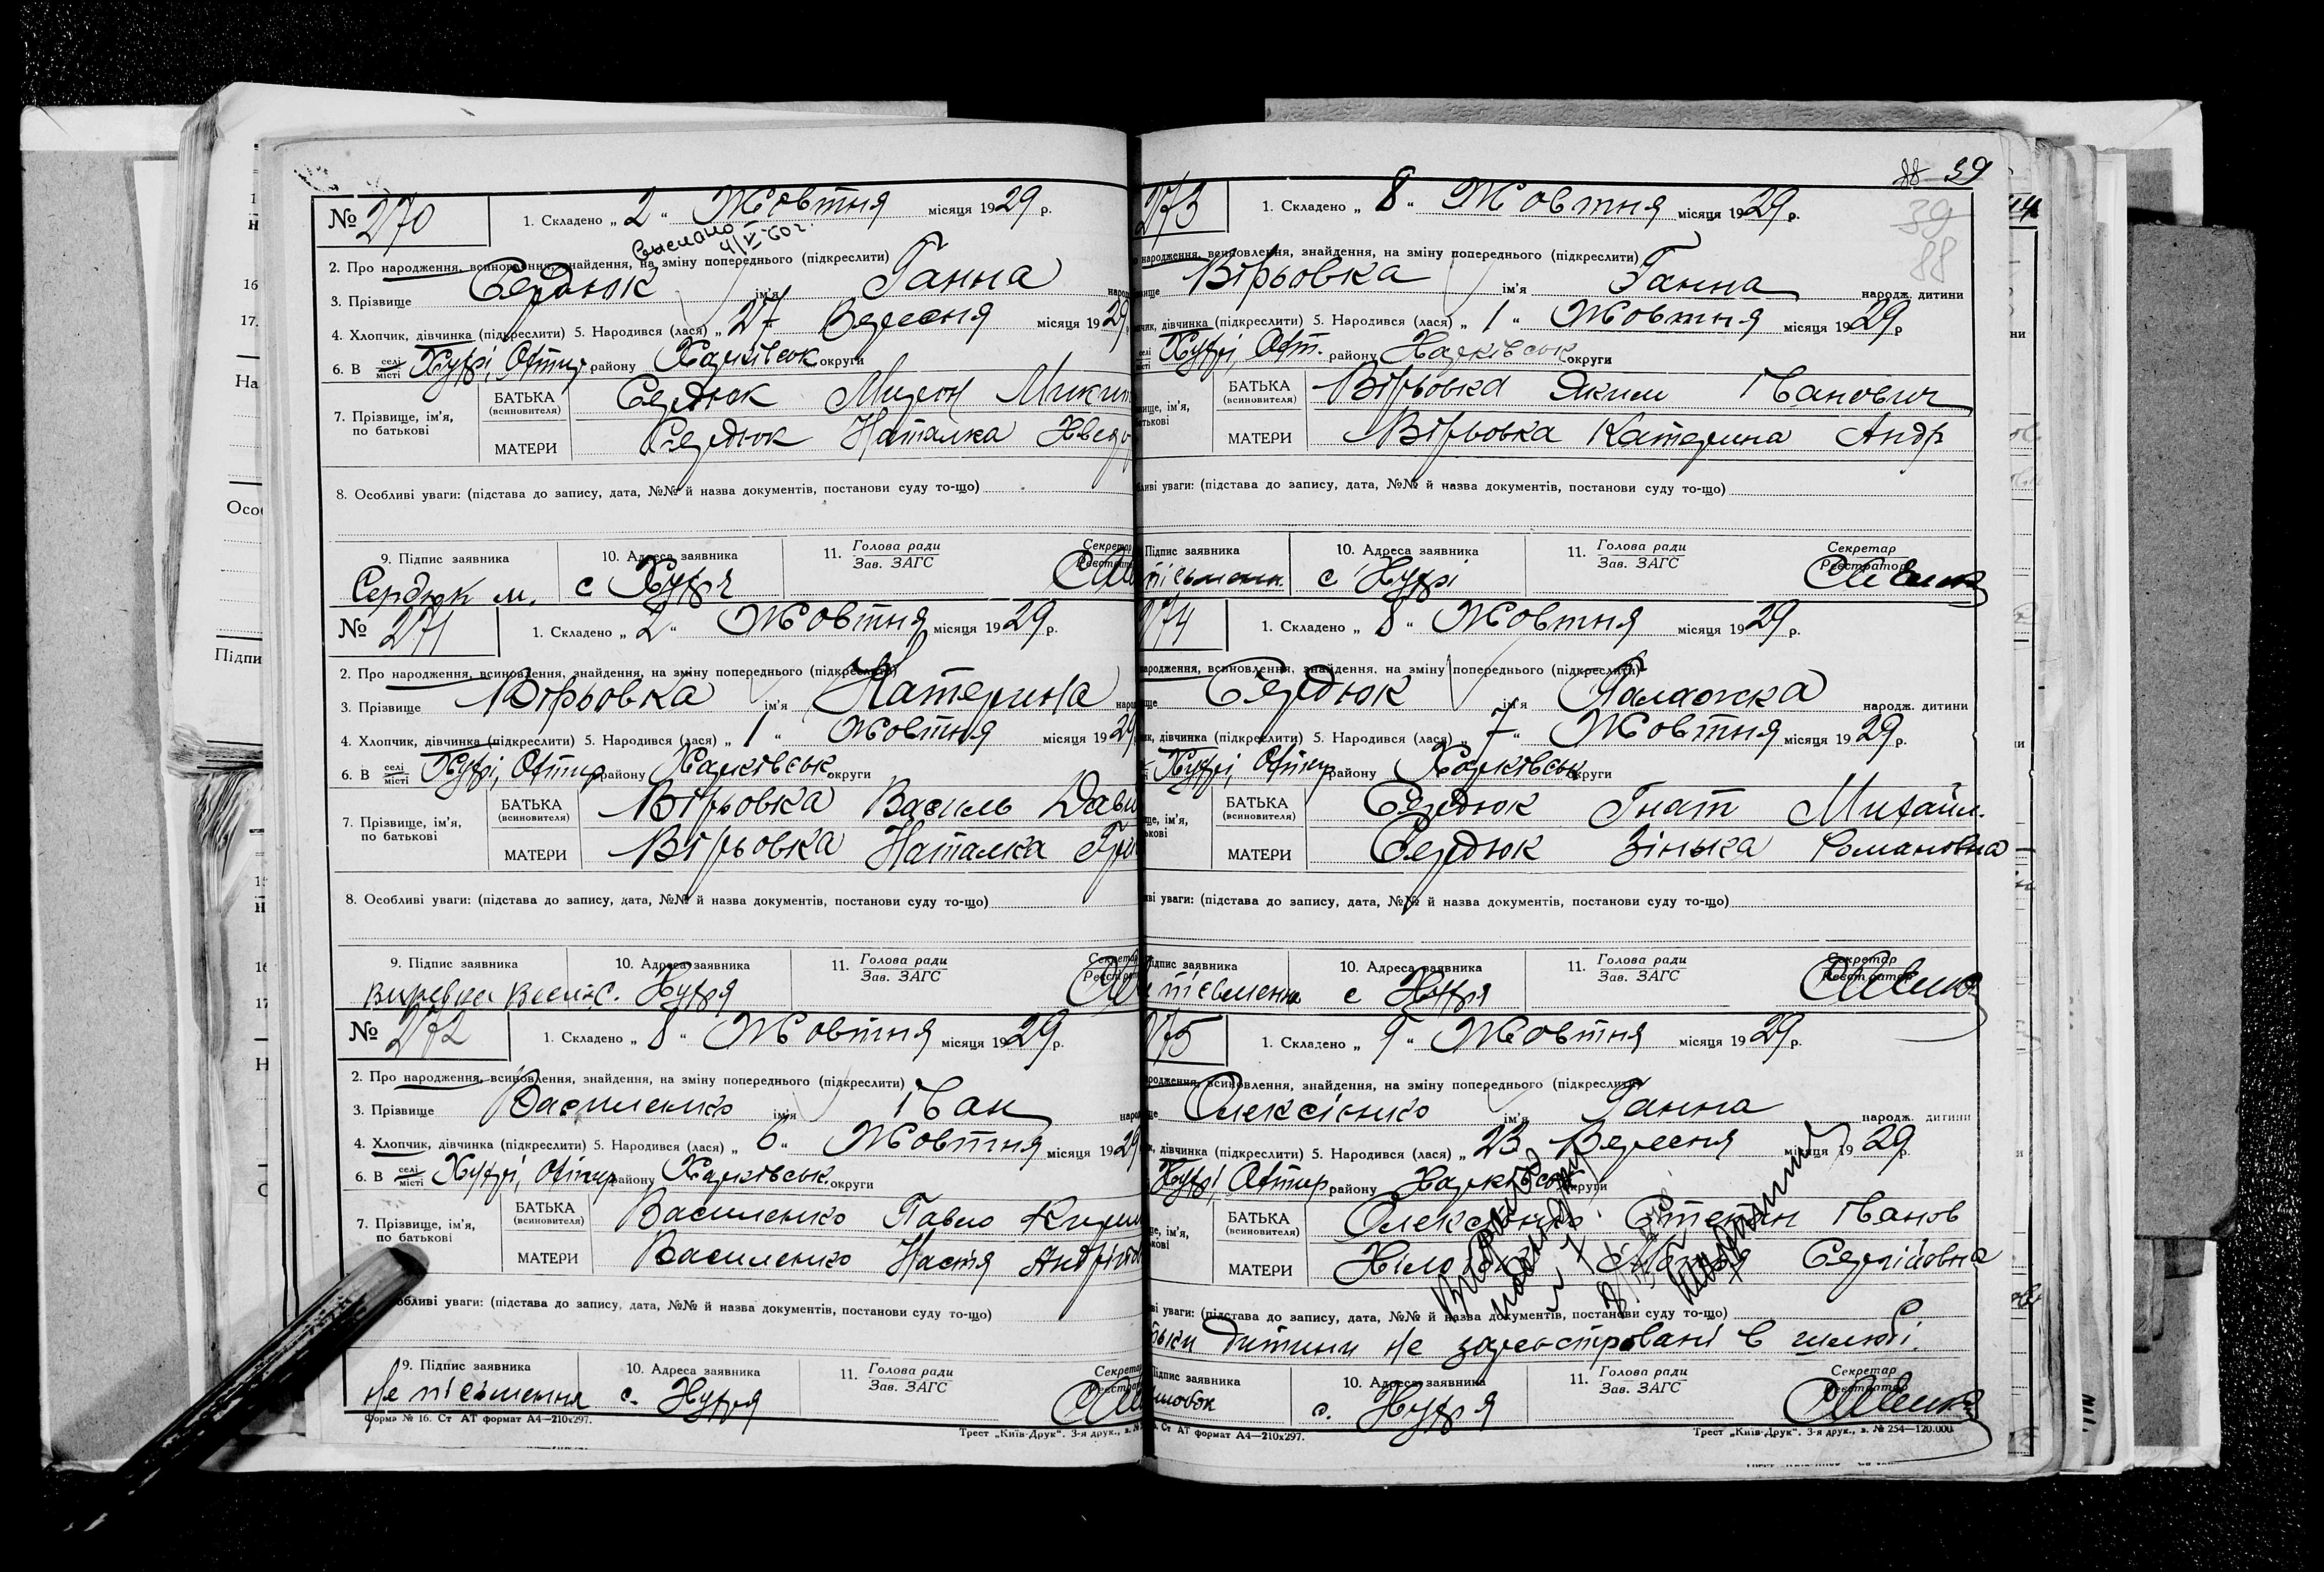 № 270
1. Складено „ 2 “ Жовтня місяця 1929 р.
4/VI 60 г.
2. Про народження, всиновлення, знайдення, на зміну попереднього (підкреслити)
3. Прізвище Сердюк ім'я Ганна
4. Хлопчик, дівчинка (підкреслити) 5. Народився (лася) „ 27 Вересня місяця 1929
6. В селі місті Хухрі, Охтир району Харківськ округи
7. Прізвище, ім'я, по батькові
БАТЬКА (всиновителя) Сердюк Мирон Микит
МАТЕРИ Сердюк Наталка Хведо
8. Особливі уваги: (підстава до запису, дата, №№ й назва документів, постанови суду то-що)
9. Підпис заявника 10. Адреса заявника 11. Голова ради Зав. ЗАГС Секретар
Сердюк м. с Хухря
№ 271
1. Складено „ 2 “ Жовтня місяця 1929 р.
2. Про народження, всиновлення, знайдення, на зміну попереднього (підкреслити)
3. Прізвище Вірьовка ім'я Катерина
4. Хлопчик, дівчинка (підкреслити) 5. Народився (лася) „ 1 “ Жовтня місяця 1929
6. В селі місті Хухрі, Охтир району Харківськ округи
7. Прізвище, ім'я, по батькові
БАТЬКА (всиновителя) Вірьовка Василь Дави
МАТЕРИ Вірьовка Наталка Гри
8. Особливі уваги: (підстава до запису, дата, №№ й назва документів, постанови суду то-що)
9. Підпис заявника 10. Адреса заявника 11. Голова ради Зав. ЗАГС
с. Хухря
№ 272
1. Складено „ 8 “ Жовтня місяця 1929 р.
2. Про народження, всиновлення, знайдення, на зміну попереднього (підкреслити)
3. Прізвище Василенко ім'я Іван
4. Хлопчик, дівчинка (підкреслити) 5. Народився (лася) „ 6 “ Жовтня місяця 1929
6. В селі місті Хухрі, Охтир району Харківськ. округи
7. Прізвище, ім'я, по батькові
БАТЬКА (всиновителя) Василенко Павло Кирил
МАТЕРИ Василенко Настя Андрі
обливі уваги: (підстава до запису, дата, №№ й назва документів, постанови суду то-що)
9. Підпис заявника 10. Адреса заявника 11. Голова ради Зав. ЗАГС
Не пісьмення с. Хухря
Форма № 16. Ст АТ формат А4—210х297.
Трест „Київ-Друк“. 3-я друк., з. №
88 39
39
88
273
1. Складено „ 8 “ Жовтня місяця 1929 р.
народження, всиновлення, знайдення, на зміну попереднього (підкреслити)
Вірьовка ім'я Ганна народж. дитини
дівчинка (підкреслити) 5. Народився (лася) „ 1 “ Жовтня місяця 1929 р
селі місті Хухрі, Охт. району Харківськ округи
БАТЬКА (всиновителя) Вірьовка Яким Іванович
МАТЕРИ Вірьовка Катерина Андр
уваги: (підстава до запису, дата, №№ й назва документів, постанови суду то-що)
Підпис заявника 10. Адреса заявника 11. Голова ради Зав. ЗАГС Секретар Реєстратор
с Хухрі
274
1. Складено „ 8 “ Жовтня місяця 1929 р.
народження, всиновлення, знайдення, на зміну попереднього (підкреслити)
Сердюк ім'я Палажка народж. дитини
дівчинка (підкреслити) 5. Народився (лася) „ 7 “ Жовтня місяця 1929 р.
Хухрі, Охтир району Харківськ округи
БАТЬКА (всиновителя) Сердюк Гнат Михайл.
МАТЕРИ Сердюк Зінька Романовна
уваги: (підстава до запису, дата, №№ й назва документів, постанови суду то-що)
Підпис заявника 10. Адреса заявника 11. Голова ради Зав. ЗАГС Секретар Реєстратор
с Хухря
275
1. Складено „ 9 “ Жовтня місяця 1929 р.
народження, всиновлення, знайдення, на зміну попереднього (підкреслити)
Олексієнко ім'я Ганна народж. дитини
дівчинка (підкреслити) 5. Народився (лася) „ 23 Вересня місяця 1929 р.
Хухрі, Охтир району Харківськ округи
БАТЬКА (всиновителя) Олексієнко Степан Іванов
МАТЕРИ Сергіївна
уваги: (підстава до запису, дата, №№ й назва документів, постанови суду то-що)
дитини не зареєстровані в шлюбі.
Підпис заявника 10. Адреса заявника 11. Голова ради Зав. ЗАГС Секретар
с. Хухря
Ст АТ формат А4—210х297.
Трест „Київ-Друк“. 3-я друк., з. № 254—120.000.